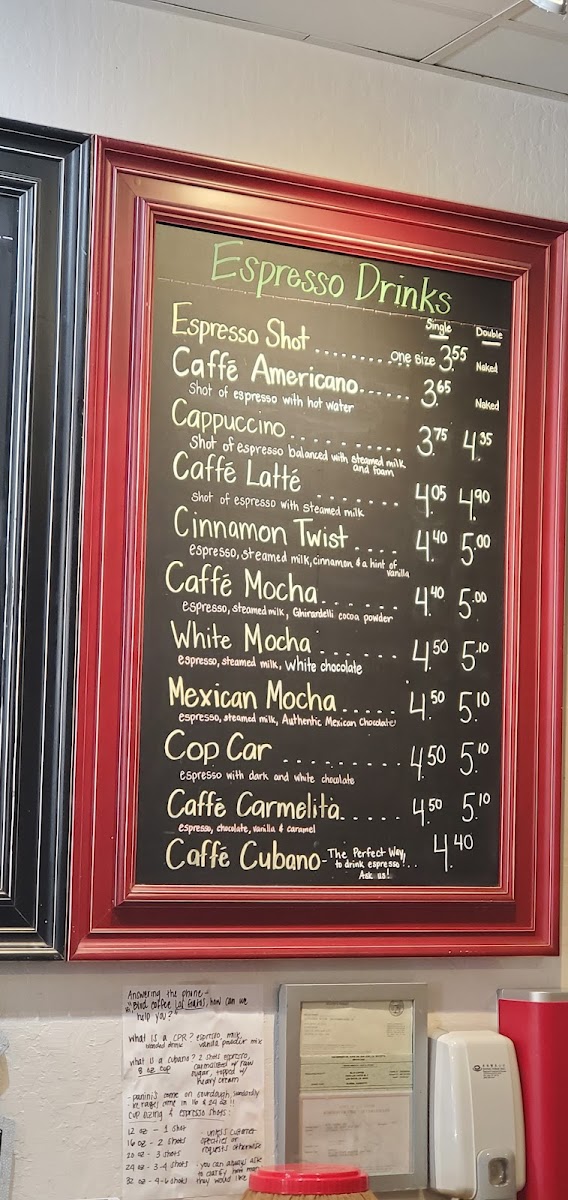 Espresso Drinks
Single Double
Espresso Shot ......... one size 3.55 Naked
Caffé Americano...... 3.65 Naked
Shot of espresso with hot water
Cappuccino.......... 3.75 4.35
Shot of espresso balanced with steamed milk
and foam
Caffé Latté ........ 4.05 4.90
shot of espresso with steamed milk
Cinnamon Twist .... 4.40 5.00
espresso, steamed milk, cinnamon & a hint of
vanilla
Caffé Mocha...... 4.40 5.00
espresso, steamed milk, Ghirardelli cocoa powder
White Mocha ...... 4.50 5.10
espresso, steamed milk, white chocolate
Mexican Mocha ..... 4.50 5.10
espresso, steamed milk, Authentic Mexican Chocolate!
Cop Car ......... 4.50 5.10
espresso with dark and white chocolate
Caffé Carmelita..... 4.50 5.10
espresso, chocolate, vanilla & caramel
Caffé Cubano - The Perfect Way
to drink espresso! .. 4.40
Ask us!
Answering the phone -
coffee how can we
help you?"
What is a CPR? espresso, milk,
vanilla powder mix
what is a cubano? 2 shots espresso,
8 oz cup caramelized w/ raw
sugar, topped w/
heavy cream
paninis come on sourdough,
come in 16 & 24 oz !!
cup sizing & espresso shots:
12 oz - 1 shot
16 oz - 2 shots
20 oz - 3 shots
24 oz - 3-4 shots
32 oz - 4-6 shots
- unless customer
specifies or
requests otherwise
- you can always ask
to clarify how many
they would like